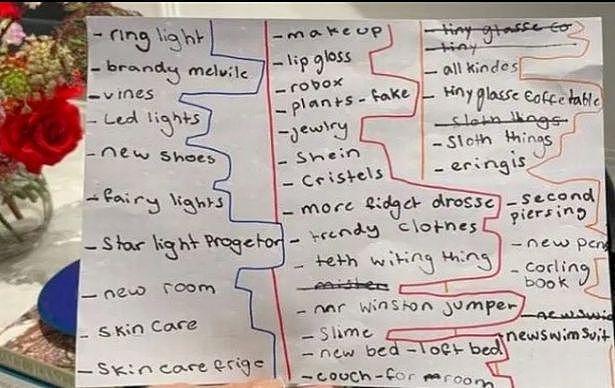 - ring light
- brandy melvile
- vines
- Led lights
- new shoes
- fairy lights
- Star light Progetor
- new room
- skin care
- skin care frige
- makeup
- lip gloss
- robox
- plants - fake
- jewlry
- shein
- Cristels
- more fidget drosse
- trendy clothes
- teth witing thing
- mr winston jumper
- slime
- new bed - loft bed
- couch - for room
- tiny glasse co
- tiny
- all kindes
- tiny glasse coffe table
- Sloth things
- eringis
- second
piersing
- new pen
- corling
book
newswimsuit